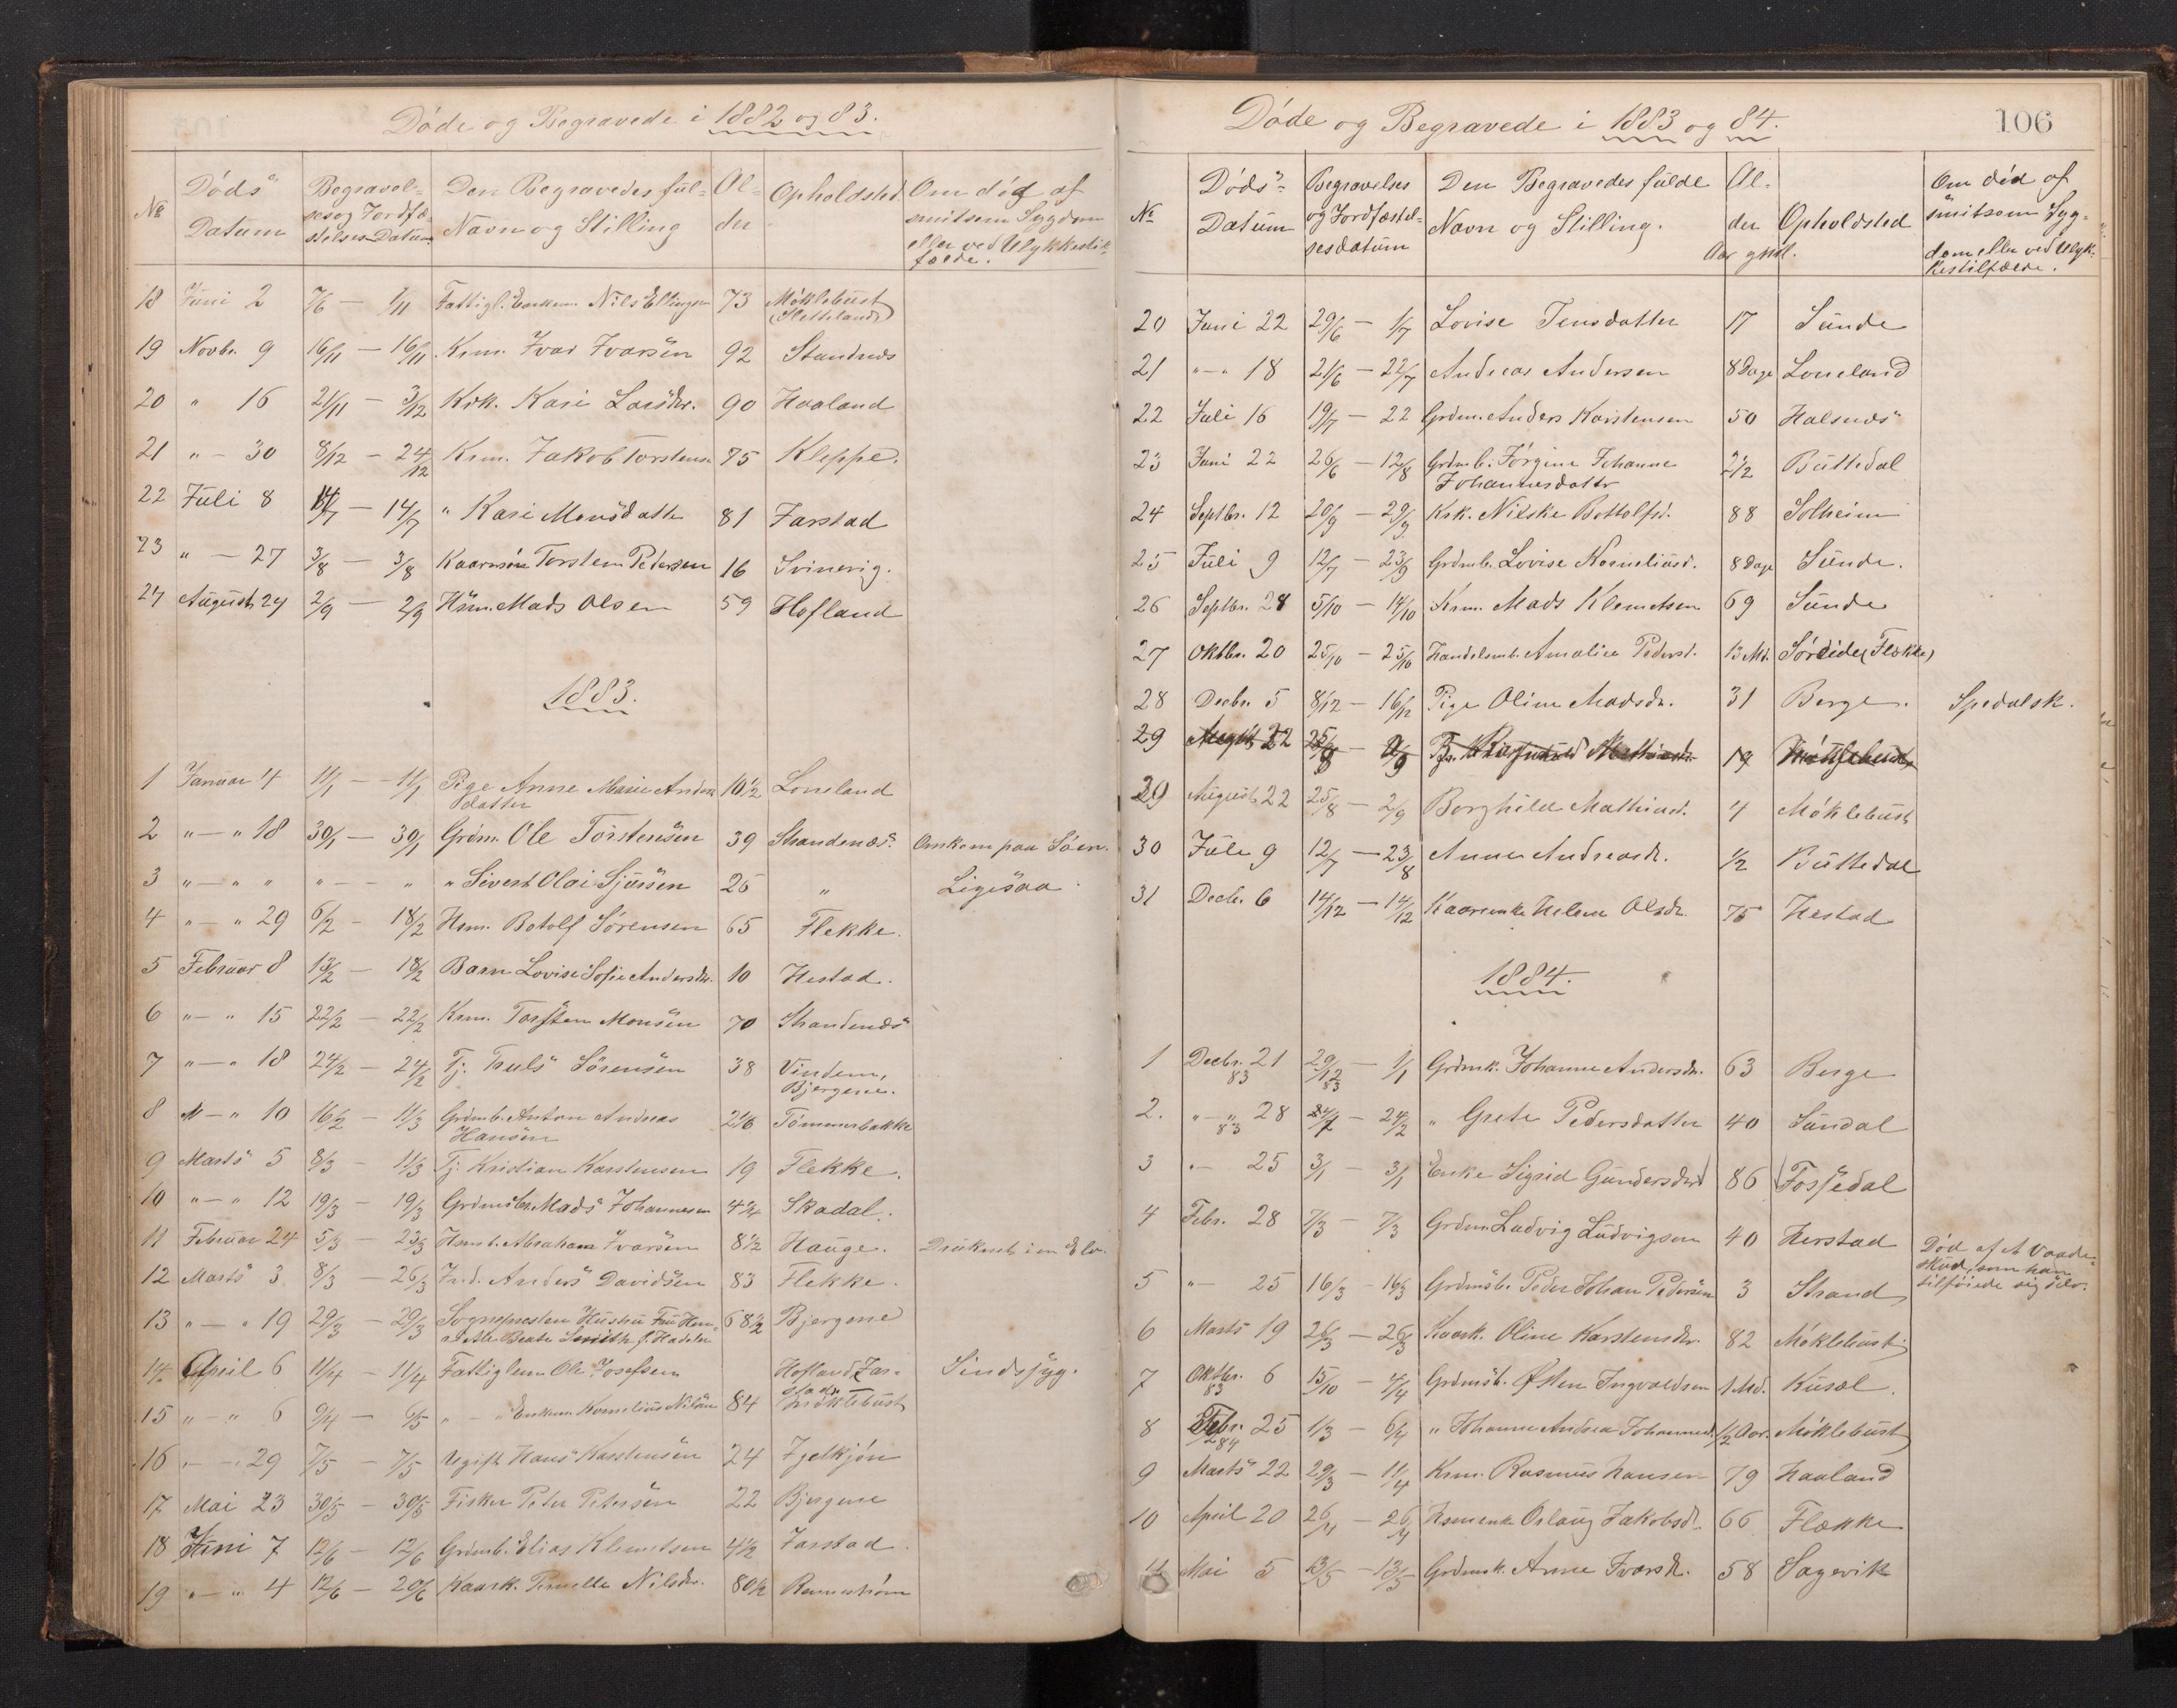 Døde og Begravede i 1882 og 83.
№ Døds Datum Begravel- ses og Jordfæ- stelses Datum Den Begravedes ful- Navn og Stilling Al- der Opholdsted. Om død af smitsom Sygdom eller ved Ulykkestil- fælde.
18 Juni 2 7/6 — 1/11 Fattigl. Enkem. Nils Ellingsen 73 Møklebust (Sletteland)
19 Novbr. 9 16/11 — 16/11 Krm. Ivar Ivarsen 92 Standnæs
20 " 16 21/11 — 3/12 Krk. Kari Larsdr. 90 Haaland
21 " - 30 8/12 - 24/12 Krm. Jakob Torstens. 75 Kleppe.
22 Juli 8 14/7 — 14/7 " Kari Monsdatter 81 Jarstad
23 " — 27 3/8 — 3/8 Kaarmsøn Torsten Pedersen 16 Svinevig.
24 August 24 2/9 — 2/9 Hsm. Mads Olsen 59 Hofland
1883.
1 Januar 4 11/1 — 11/1 Pige Anne Marie Anders datter 10 1/2 Loneland
2 " — " 18 30/1 — 30/1 Grdm. Ole Torstensen 39 Strandenæs. Omkom paa Søen.
3 " — " " " — " " Sivert Olai Sjursen 25 " Ligesaa.
4 " — " 29 6/2 — 18/2 Hsm. Botolf Sørensen 65 Flekke.
5 Februar 8 13/2 — 18/2 Barn Lovise Sofie Andersdr. 10 Hestad.
6 " — " 15 22/2 — 22/2 Krm. Torsten Monsen 70 Strandenæs
7 " — " 18 24/2 — 24/2 Tj. Truls Sørensen 38 Vindem, Bjergene.
8 " — " 10 16/2 — 11/3 Grdmb. Anton Andreas Hansen 2 1/6 Tømmerbakke
9 Marts 5 8/3 — 11/3 Tj. Kristian Karstensen 19 Flekke.
10 " — " 12 19/3 — 19/3 Grdmsbr. Mads Johannesen 4 1/4 Skadal.
11 Februar 24 5/3 — 23/3 Hsmb. Abraham Ivarsen 8 1/2 Hauge. Druknet i en Elv.
12 Marts 3 8/3 — 26/3 Anders Davidsen 83 Flekke.
13 " — " 19 29/3 — 29/3 Sognepresten Hustru Fru Hen- Beate Smith f. Hadeler 68 1/2 Bjergene
14. April 6 11/4 — 11/4 Fattiglem Ole Josefsen Hofland Jar- stad Sindssyg.
15 " — " 6 9/4 — 6/5 " — " Enkem. Kornelius Nilsen 84 Møklebust
16 " — " 29 7/5 — 7/5 Ugift Hans Karstensen 24 Tjelkjøn
17 Mai 23 30/5 — 30/5 Fisker Peter Petersen 22 Bjergene
18 Juni 7 12/6 — 12/6 Grdmb. Elias Klemetsen 4 1/2 Jarstad.
19 " — " 4 12/6 — 20/6 Kaark. Pernelle Nilsdr. 80 1/2
Døde og Begravede i 1883 og 84. 106
№ Døds- Datum Begravelses og Jordfæstel- sesdatum Den Begravedes fulde Navn og Stilling. Al- der Aar gml. Opholdsted Om død af smitsom Syg- dom eller ved Ulyk- kestilfælde.
20 Juni 22 29/6 — 1/7 Lovise Jensdatter 17 Sunde
21 " — " 18 21/6 — 22/7 Andreas Andersen 8 Dage Loneland
22 Juli 16 19/7 — 22 Grdm. Anders Karstensen 50 Halsnæs
23 Juni 22 26/6 — 12/8 Grdmb. Jørgine Johanne Johannesdatter 2 1/2 Buttedal
24 Septbr. 12 20/9 — 29/9 Krk. Nilske Bottolfsd. 88 Solheim
25 Juli 9 12/7 — 23/9 Grdmb. Lovise Korneliusd. 8 Dage Sunde.
26 Septbr. 28 5/10 — 14/10 Krm. Mads Klemetsen 69 Sunde
27 Oktbr. 20 25/10 — 25/10 Handelsmb. Amalie Pedersd. 13 Md. Søreide (Flekke)
28 Decbr. 5 8/12 — 16/12 Pige Oline Madsdr. 31 Berge. Spedalsk.
29 August 22 25/8 — 2/9 19
29 August 22 25/8 — 2/9 Borghild Mathiasd. 4 Møklebust
30 Juli 9 12/7 — 23/8 Anne Andreasdr. 1/2 Buttedal
31 Decb. 6 14/12 — 14/12 Kaarenke Helene Olsdr. 75 Hestad
1884.
1 Decbr. 21 83 29/12 83 — 1/1 Grdmk. Johanne Andersdr. 63 Berge
2. " — " 28 83 — 24/2 " Grete Pedersdatter 40 Sundal
3 " — 25 3/1 — 3/1 Enke Sigrid Gundersdtr 86 Fossedal
4 Febr. 28 7/3 — 7/3 Grdm. Ludvig Ludvigsen 40 Herstad Død af et Vaade- skud, som han tilføiede sig selv.
5 " — 25 16/3 — 16/3 Grdmsb. Peder Johan Pedersen 3 Strand
6 Marts 19 26/3 — 26/3 Kaark. Oline Karstensdr. 82 Møklebust
7 Oktbr. 6 83 15/10 — 4/4 Grdmsb. Østen Ingvaldsen 1 Md. Kusæl.
8 Febr. 25 84 1/3 — 6/4 " Johanne Andrea Johannesd. 1/2 Aar. Møklebust
9 Marts 22 29/3 — 11/4 Krm. Rasmus Hansen 79 Haaland
10 April 20 26/4 — 26/4 Hsmenke Orlaug Jakobsd. 66 Flekke
11 Mai 5 13/5 — 13/5 Grdmsk. Anne Ivarsdr. 58 Sagevik